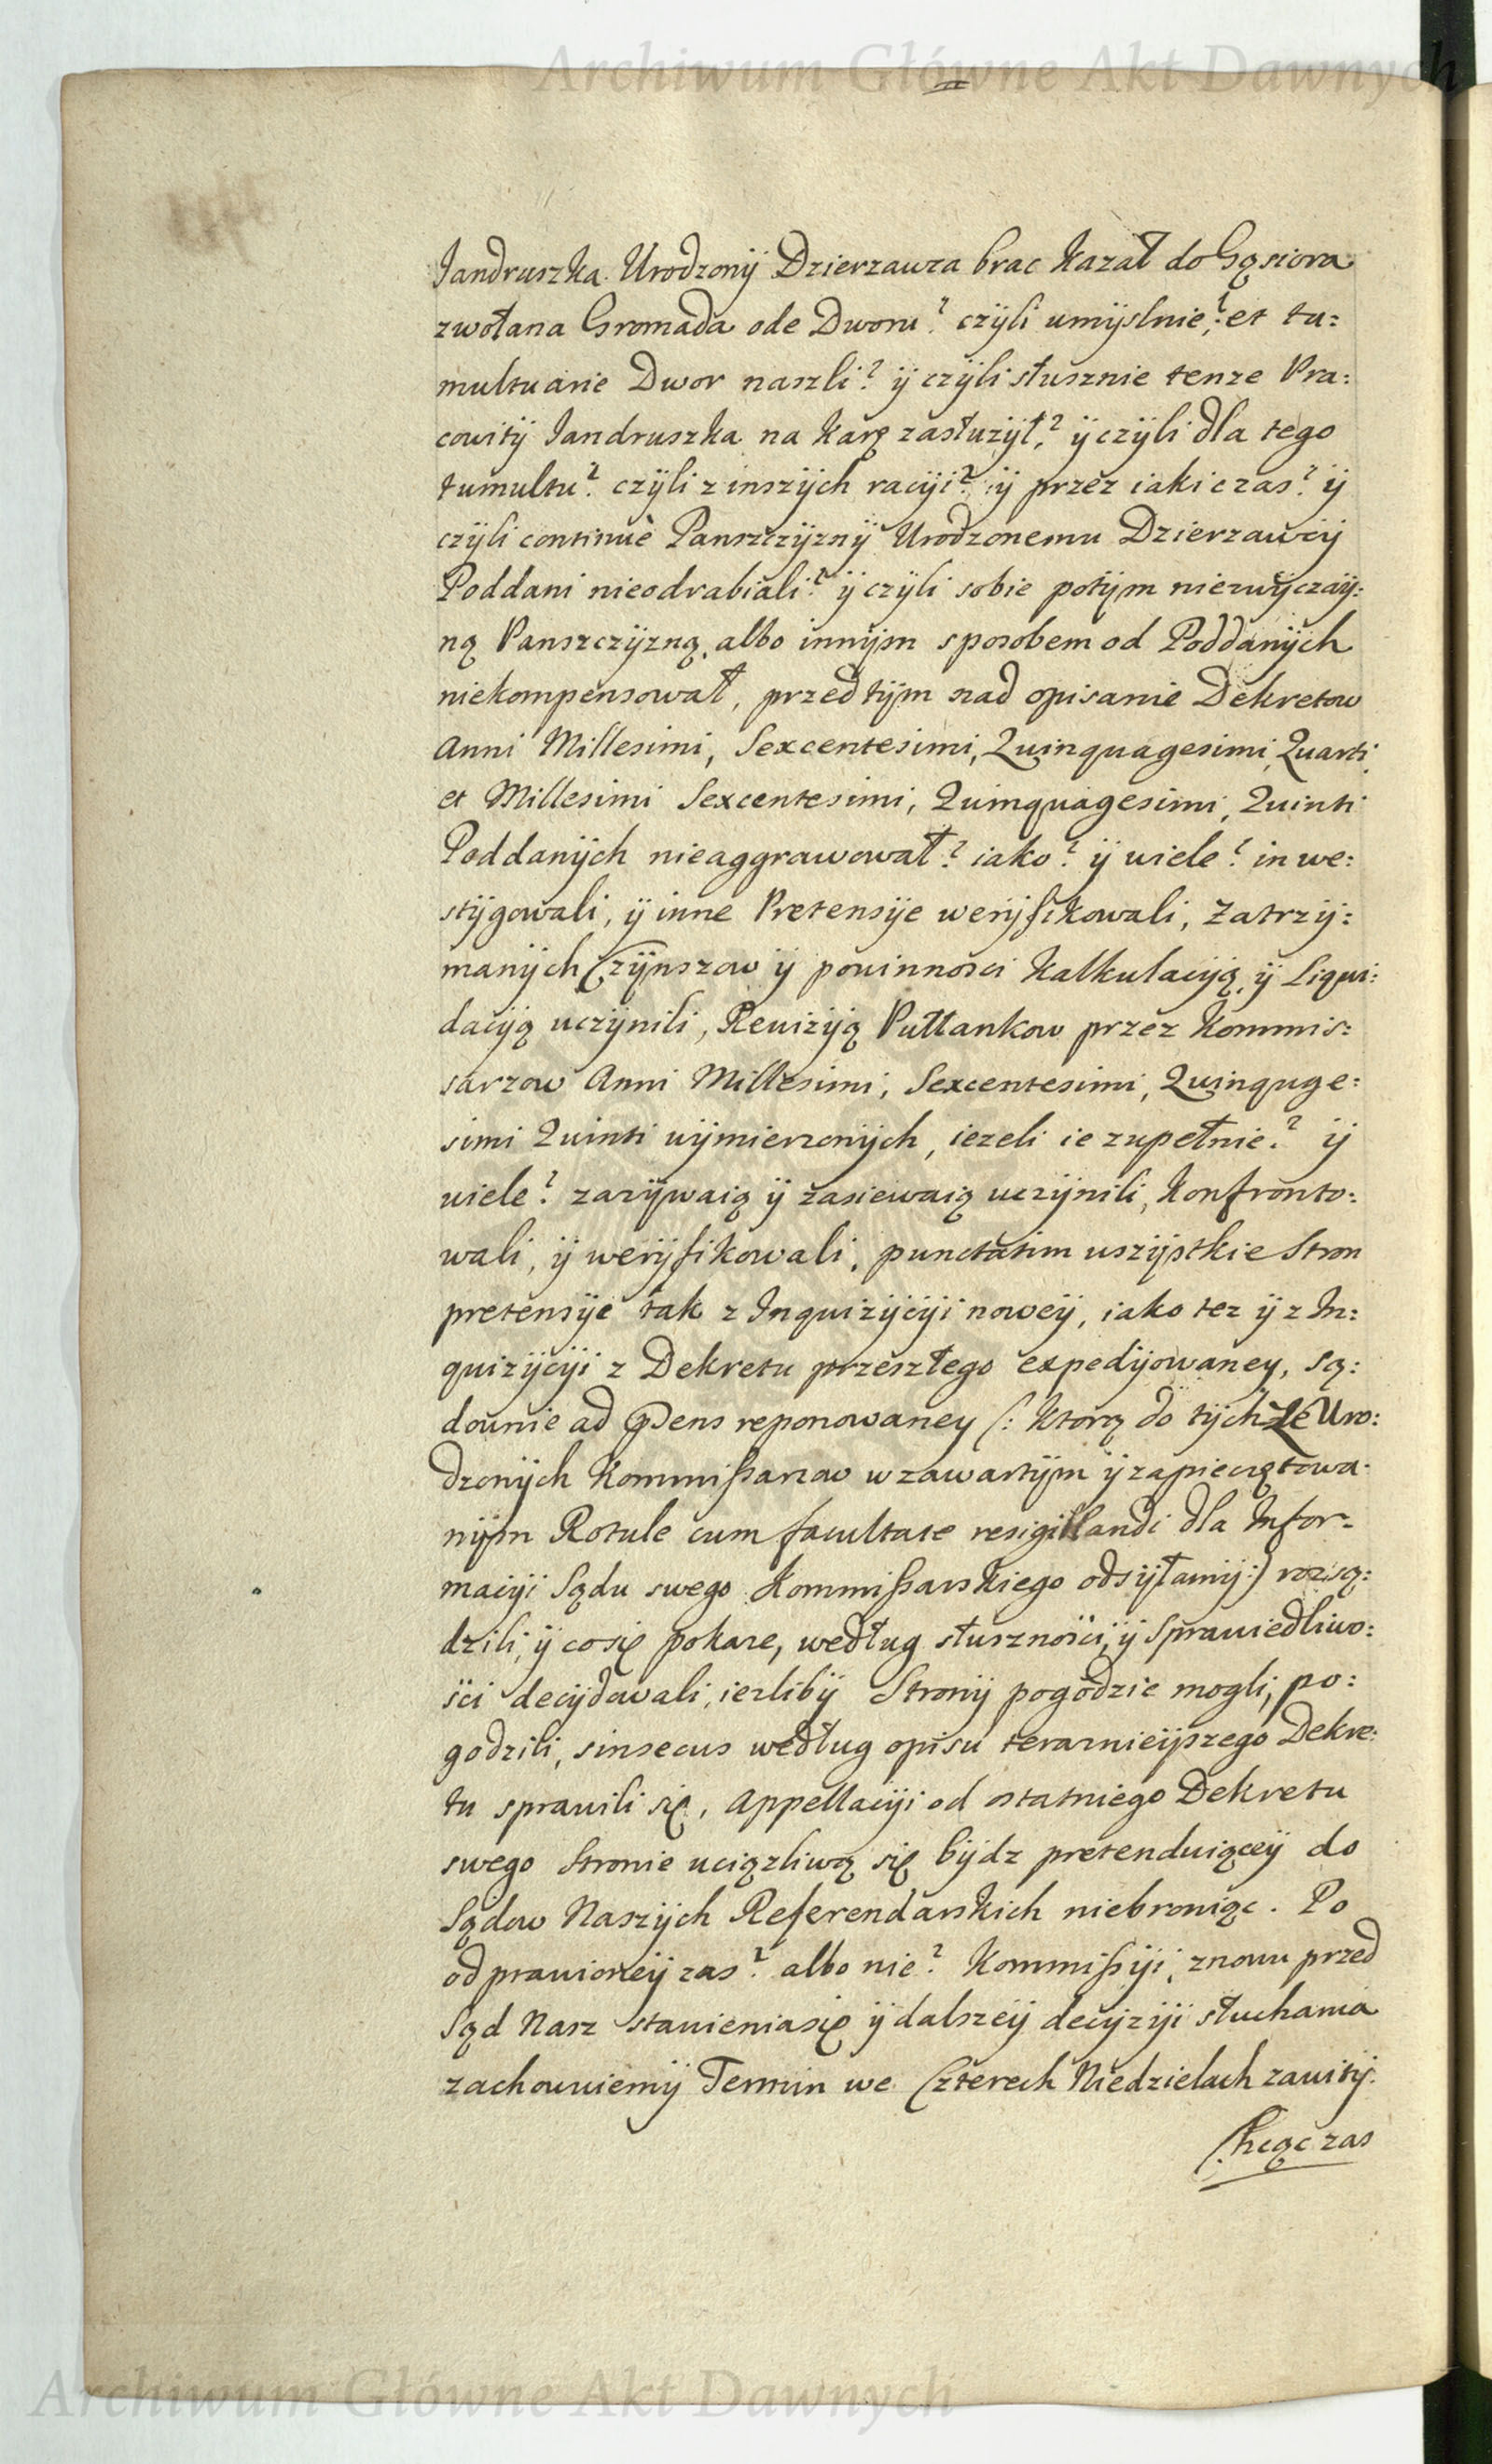 Archiwum Główne Akt Dawnych
Jandruszka Urodzony Dzierzawca brac kazał do Gąsiora
zwołana Gromada ode Dworu? czÿli umÿslnie? et tu:
multuarie Dwor naszli? ÿ czÿli słusznie tenze Pra:
cowitÿ Jandruszka na karę zasłuzÿł? ÿ czÿli dla tego
tumultu? czÿli z inszÿch racÿi? ÿ przez iaki czas? ÿ
czÿli continuè Panszczÿznÿ Urodzonemu Dzierzawcÿ
Poddani nieodrabiali? ÿ czÿli sobie potÿm niezwÿczaÿ:
ną Panszczÿzną, albo innÿm sposobem od Poddanÿch
niekompensował, przed tÿm nad opisanie Dekretow
Anni Millesimi, Sexcentesimi, Quinquagesimi, Quarti,
et Millesimi Sexcentesimi, Quinquagesimi, Quinti
Poddanÿch nieaggrawował? iako? ÿ wiele? inwe:
stÿgowali, ÿ inne Pretensÿe werÿfikowali, Zatrzÿ:
manÿch Czÿnszow ÿ powinnosci Kalkulacÿą, ÿ Liqui:
dacÿą uczÿnili, Rewizÿą Pułłankow przez Kommis:
sarzow Anni Millesimi, Sexcentesimi, Quinquge:
simi Quinti wÿmierzonÿch, iezeli ie zupełnie? ÿ
wiele? zazÿwaią ÿ zasiewaią uczÿnili, Konfronto:
wali, ÿ werÿfikowali, punctatim wszÿstkie Stron
pretensÿe tak z Inquizÿcÿi noweÿ, iako tez ÿ z In:
quizÿcÿi z Dekretu przeszłego expedÿowaney, są:
downie ad Prens reponowaney (: ktorą do tÿchze Uro:
dzonÿch Kommißarzow w zawartÿm ÿ zapieczętowa:
nÿm Rotule cum facultate resigillandi dla Infor:
macÿi Sądu swego Kommißarskiego odsÿłamÿ:) rozsą:
dzili, ÿ co się pokaze, według słusznosci, ÿ Sprawiedliwo:
sci decÿdowali, iezlibÿ Stronÿ pogodzic mogli, po:
godzili, sinsecus według opisu teraznieÿszego Dekre:
tu sprawili się, Appellacÿi od ostatniego Dekretu
swego Stronie uciązliwą się bÿdz pretenduiąceÿ do
Sądow Naszÿch Referendarskich niebroniąc. Po
odprawioneÿ zas? albo nie? Kommißÿi, znowu przed
Sąd Nasz stawienia się ÿ dalszeÿ decÿzÿi słuchania
zachowuiemÿ Termin we Czterech Niedzielach zawitÿ.
Chcąc zas
Archiwum Główne Akt Dawnych